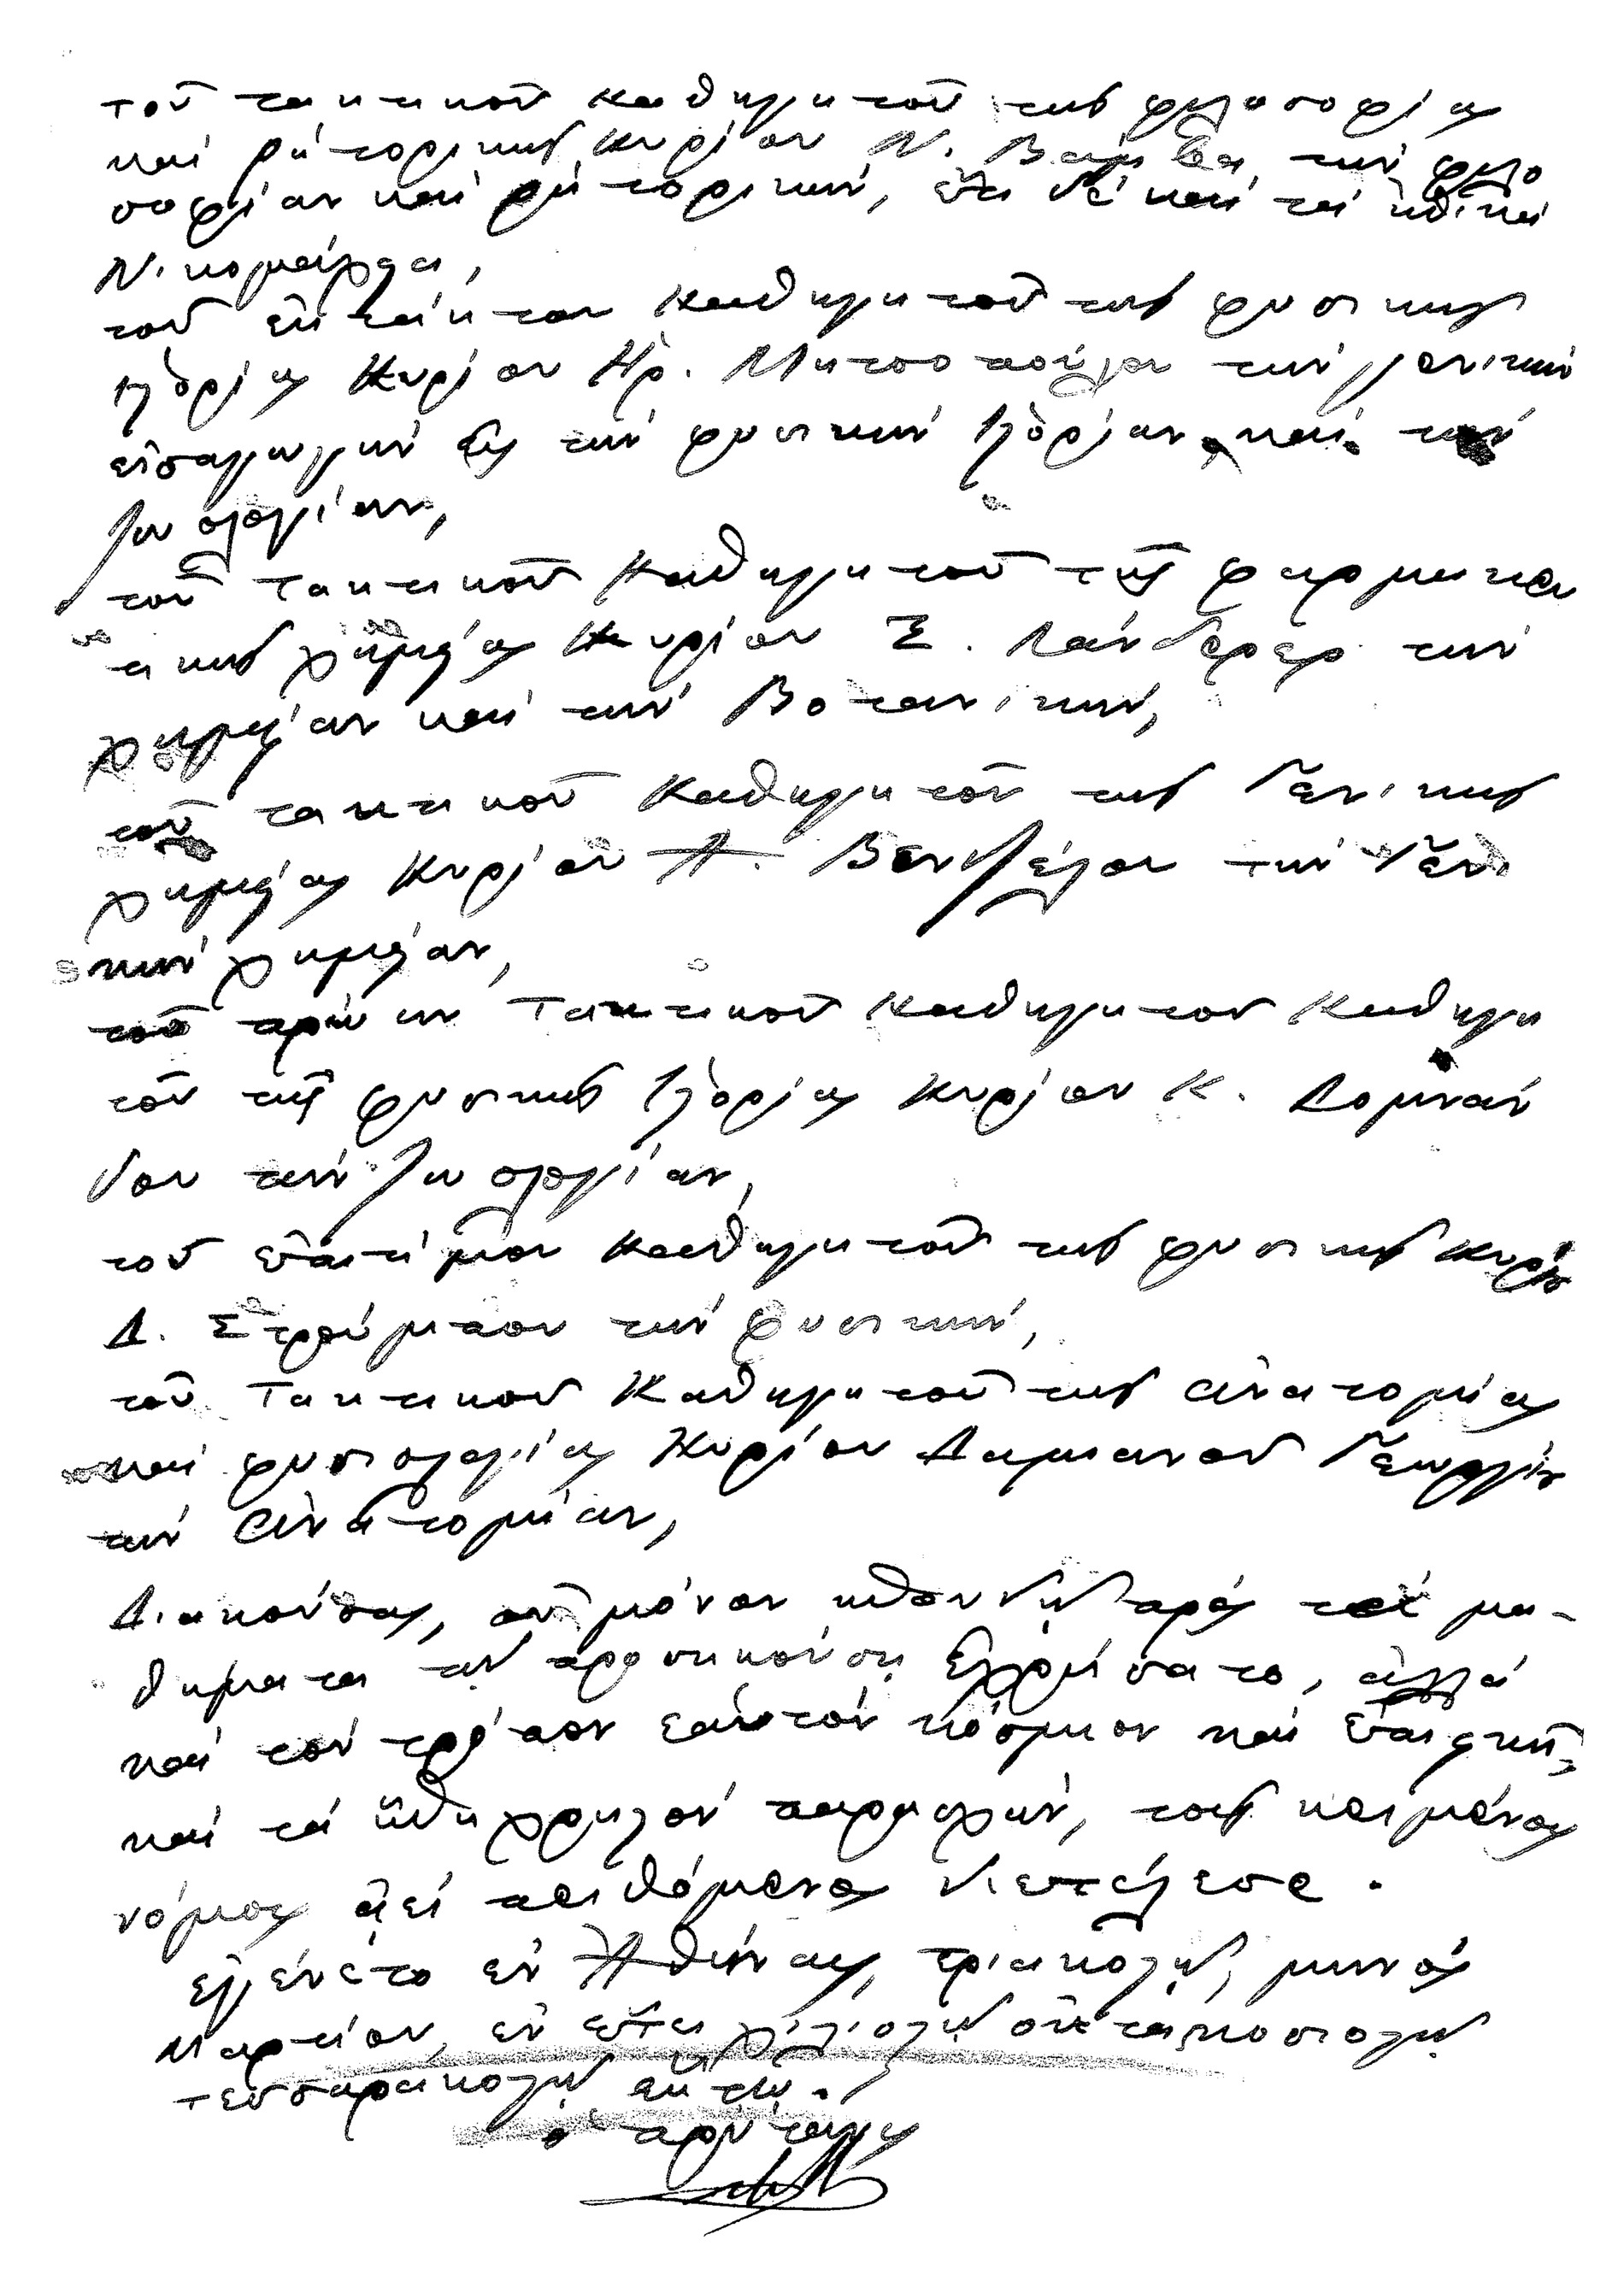 τοῦ τακτικοῦ καθηγητοῦ τῆς φιλοσοφίας
καὶ ῥητορικῆς Κυρίου Ν. Βάμβα τὴν φιλο
σοφίαν καὶ ῥητορικήν, ἔτι δὲ καὶ τὰ ἠθικὰ
Νικομάχεια,
τοῦ ἐκτάκτου καθηγητοῦ τῆς φυσικῆς
ἱστορίας Κυρίου Ἡρ. Μητσοπούλου τὴν γενικὴν
εἰσαγωγὴν εἰς τὴν φυσικὴν ἱστορίαν καὶ τὴν
ζωολογίαν,
τοῦ τακτικοῦ Καθηγητοῦ τῆς φαρμακευ
τικῆς χημείας Κυρίου Ξ. Λάνδερερ τὴν
χημείαν καὶ τὴν Βοτανικήν,
τοῦ τακτικοῦ Καθηγητοῦ τῆς Γενικῆς
χημείας Κυρίου Α. Βενιζέλου τὴν Γενι
κὴν χημείαν,
τοῦ πρώην Τακτικοῦ Καθηγητοῦ Καθηγη
τοῦ τῆς φυσικῆς ἱστορίας Κυρίου Κ. Δομνάν
δου τὴν ζωολογίαν,
τοῦ ἐπιτίμου Καθηγητοῦ τῆς φυσικῆς Κυρίου
Δ. Στρούμπου τὴν φυσικήν,
τοῦ Τακτικοῦ Καθηγητοῦ τῆς ἀνατομίας
καὶ φυσιολογίας Κυρίου Δαμιανοῦ Γεωργίου
τὴν ἀνατομίαν,
Διακούσας, οὐ μόνον σπουδὴν πρὸς τὰ μα-
θήματα τὴν προσήκουσαν ἐχρήσατο, ἀλλὰ
καὶ τὸν τρόπον ἑαυτὸν κόσμιον καὶ ἐπιεικῆ
καὶ τὰ ἤθη χρηστὸν παρασχών, τοῖς κειμένοις
νόμοις ἀεὶ πειθόμενος διετέλεσε.
ἐγένετο ἐν Ἀθήναις, τριακοστῇ, μηνὸς
Μαρτίου, ἐν ἔτει χιλιοστῷ ὀκτακοσιοστῷ
τεσσαρακοστῷ ἕκτῳ.
ὁ πρύτανις